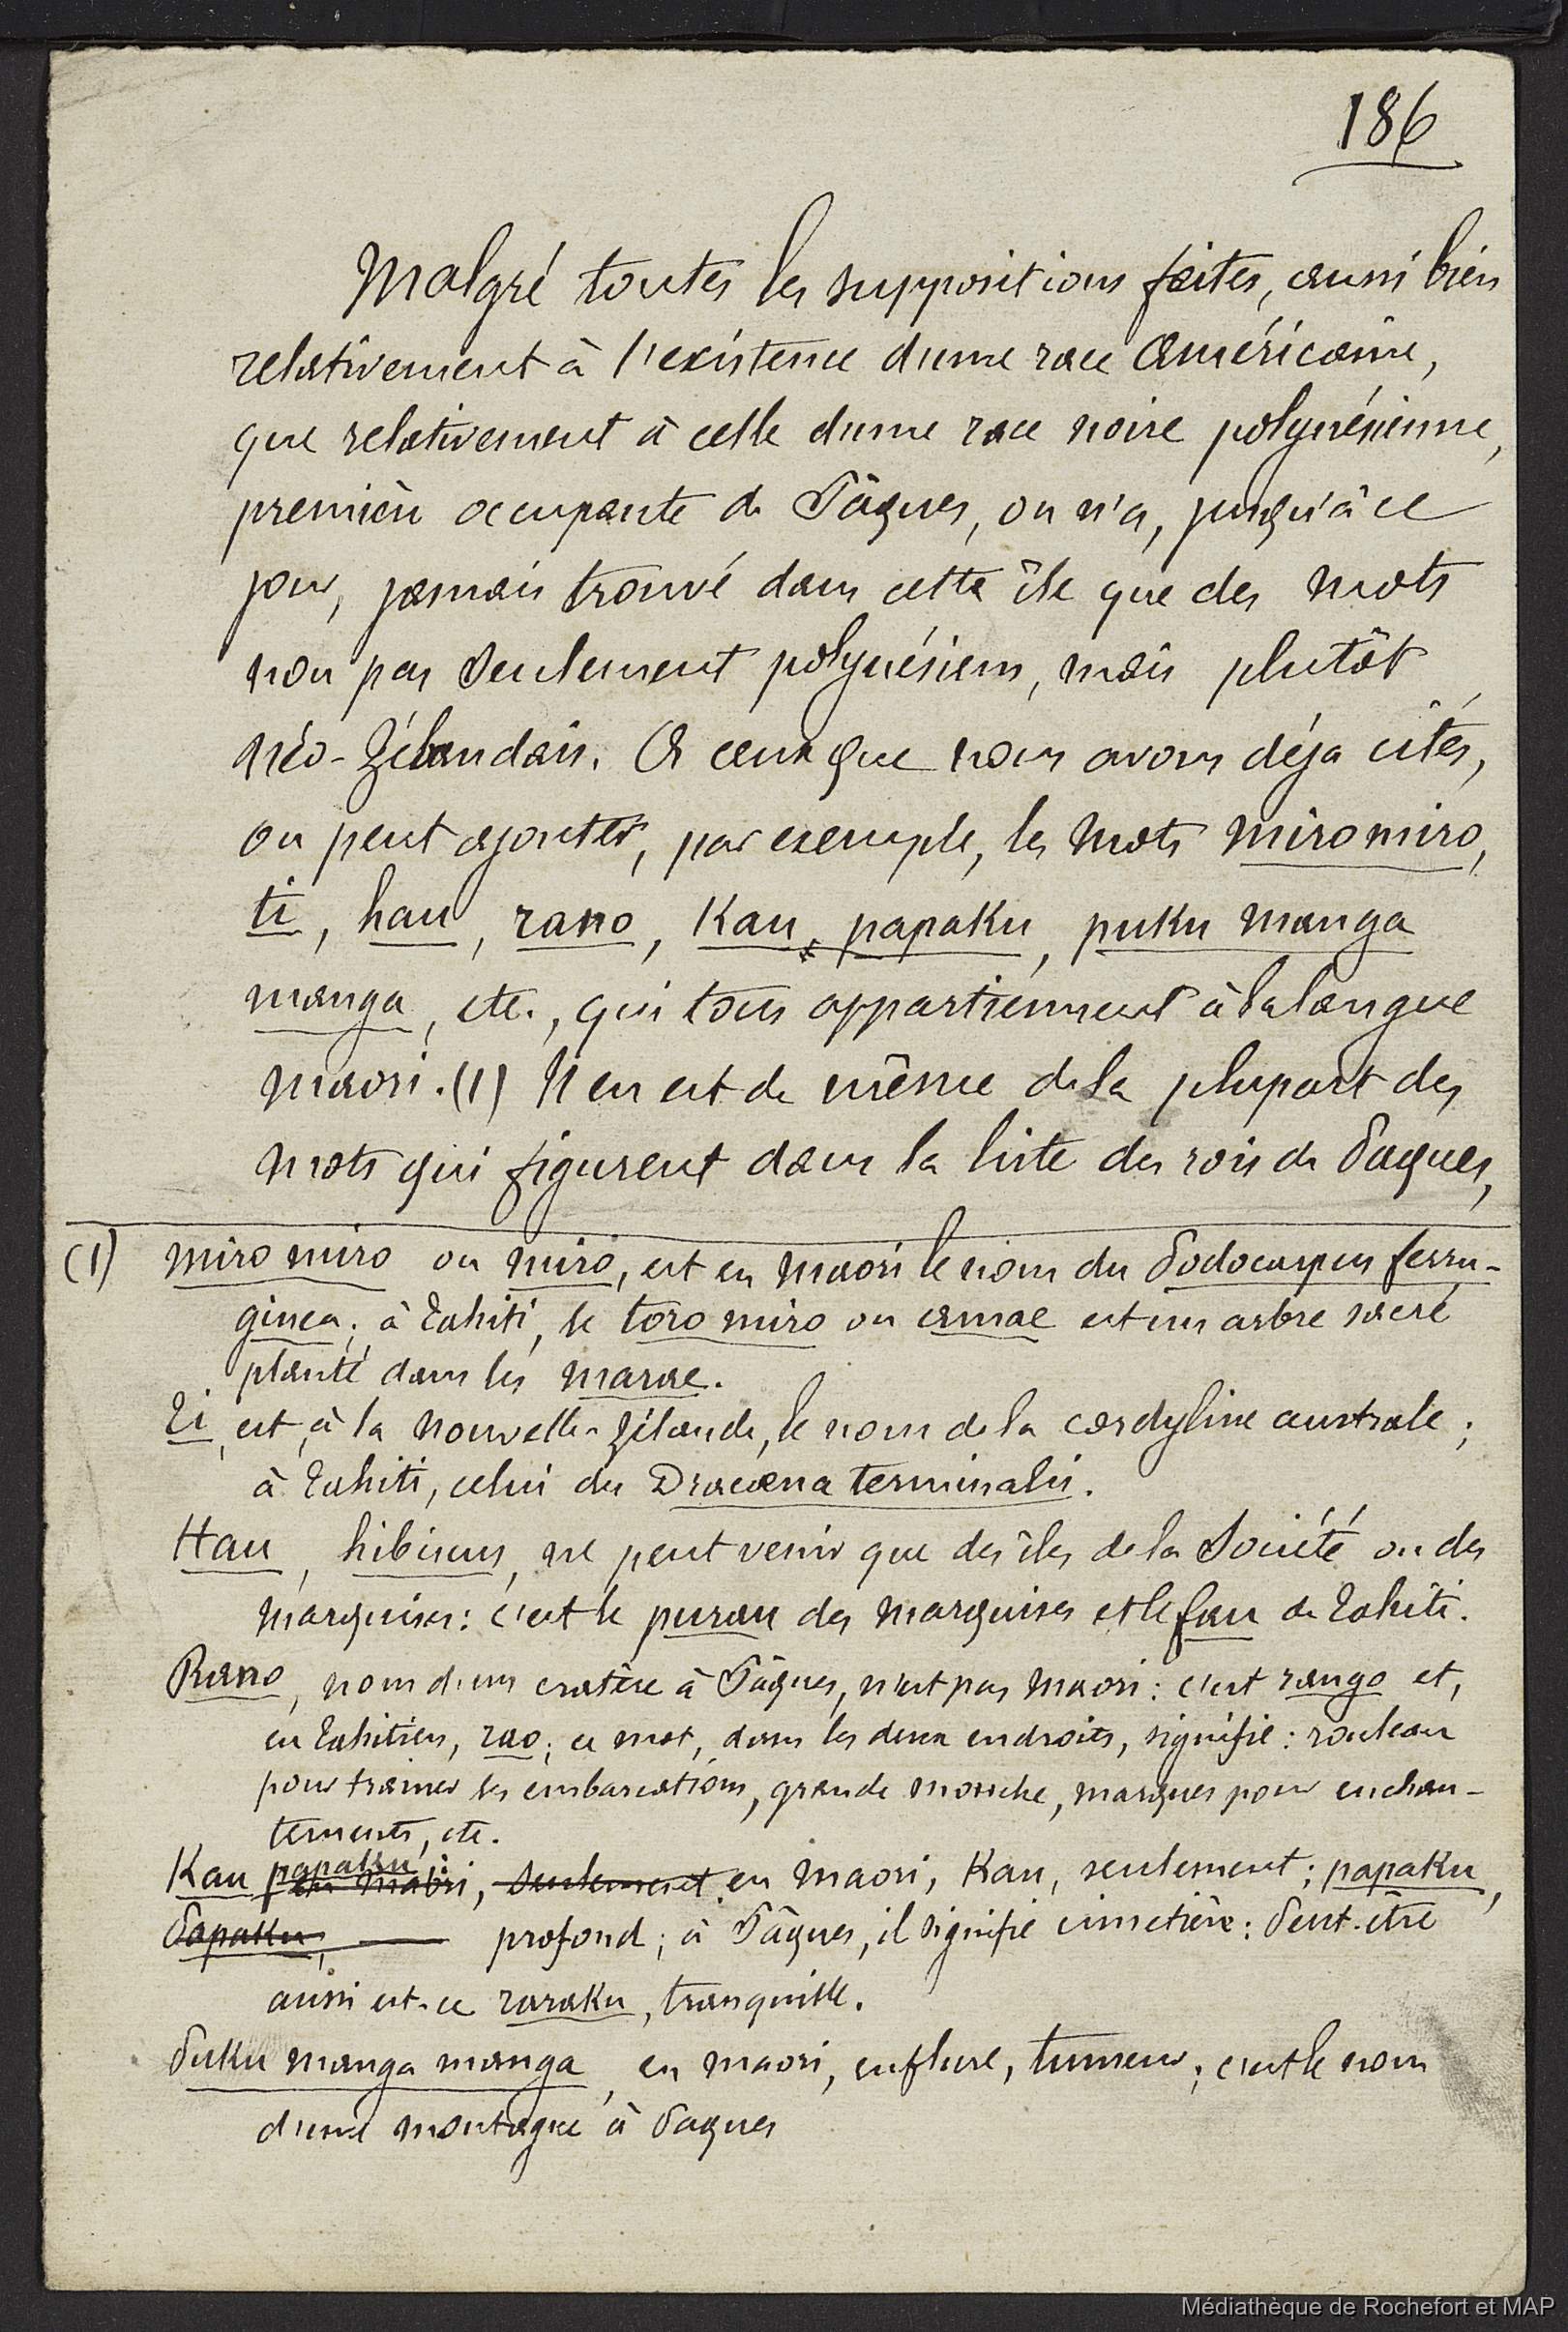 186
Malgré toutes les suppositions faites, aussi bien
relativement à l'existence d'une race Américaine,
que relativement à celle d'une race noire polynésienne,
première occupante de Pâques, on n'a, jusqu'à ce
jour, jamais trouvé dans cette île que des mots
non pas seulement polynésiens, mais plutôt
néo-Zélandais. A ceux que nous avons déja cités,
on peut ajouter, par exemple, les mots miromiro,
ti, hau, rano, Kau, papaku, puku manga
manga, etc., qui tous appartiennent à la langue
maori. (1) Il en est de même de la plupart des
mots qui figurent dans la liste des rois de Paques,
(1) miro miro ou miro, est en maori le nom du Podocarpus ferru-
ginea; à Tahiti, le toro miro ou amae est un arbre sacré
planté dans les marae.
Ti, est, à la nouvelle-Zélande, le nom de la cordyline australe;
à Tahiti, celui du Dracœna terminalis.
Hau, hibiscus, ne peut venir que des îles de la Société ou des
marquises: c'est le purau des marquises et le fau de Tahiti.
Rano, nom d'un cratère à Pâques, n'est pas maori: c'est rango et,
en tahitien, rao; ce mot, dans les deux endroits, signifie: rouleau
pour trainer les embarcations, grande mouche, marques pour enchan-
tements, etc.
Kau papaku, en maori, seulement en maori, Kau, seulement; papaku,
Papaku, — profond; à Pâques, il signifie cimetière: Peut-être
aussi est-ce raraku, tranquille.
Puku manga manga, en maori, enflure, tumeur; c'est le nom
d'une montagne à Paques
Médiathèque de Rochefort et MAP